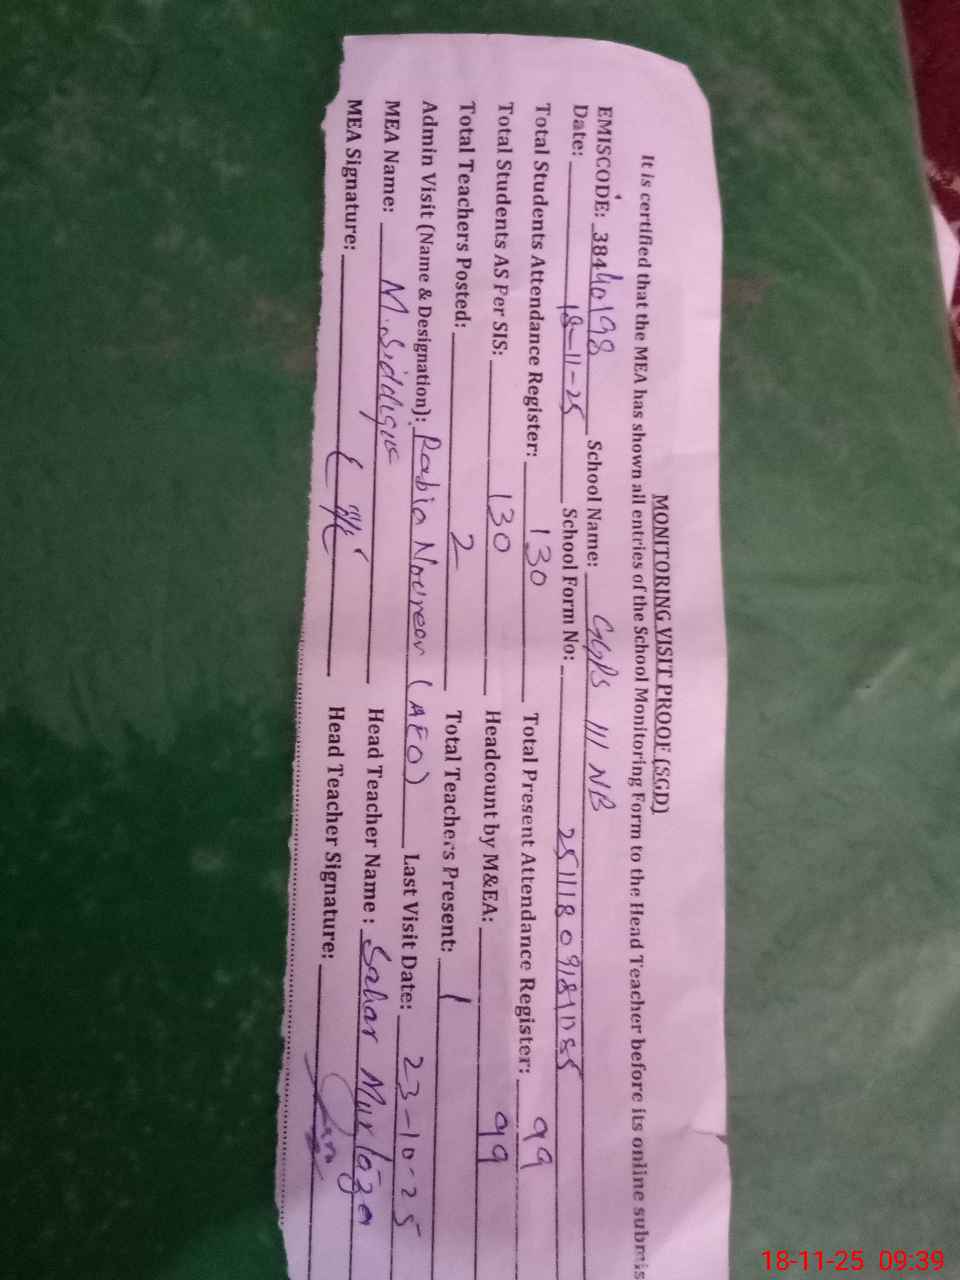 MONITORING VISIT PROOF (SGD)
It is certified that the MEA has shown all entries of the School Monitoring Form to the Head Teacher before its online submis
EMISCODE: 38440198 School Name: GGPS 111 NB
Date: 18-11-25 School Form No: 251118091811055
Total Students Attendance Register: 130 Total Present Attendance Register: 99
Total Students AS Per SIS: 130 Headcount by M&EA: 99
Total Teachers Posted: 2 Total Teachers Present: 1
Admin Visit (Name & Designation): Rabia Noureen (AEO) Last Visit Date: 23-10-25
MEA Name: M. Siddique Head Teacher Name : Sahar Murtaza
MEA Signature: Head Teacher Signature:
18-11-25 09:39